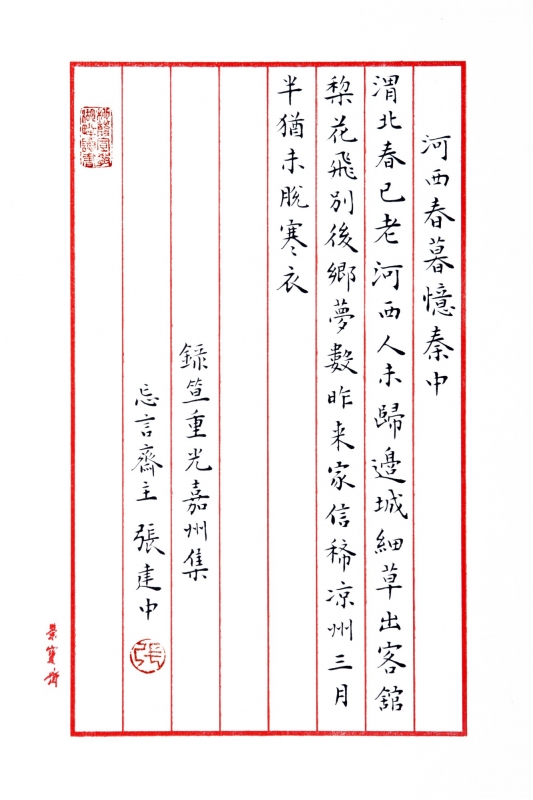 河西春暮憶秦中
渭北春已老河西人未歸邊城細草出客舘
棃花飛別後鄉夢數昨来家信稀凉州三月
半猶未脫寒衣
録笪重光嘉州集
忘言齋主張建中
張
榮寳齋